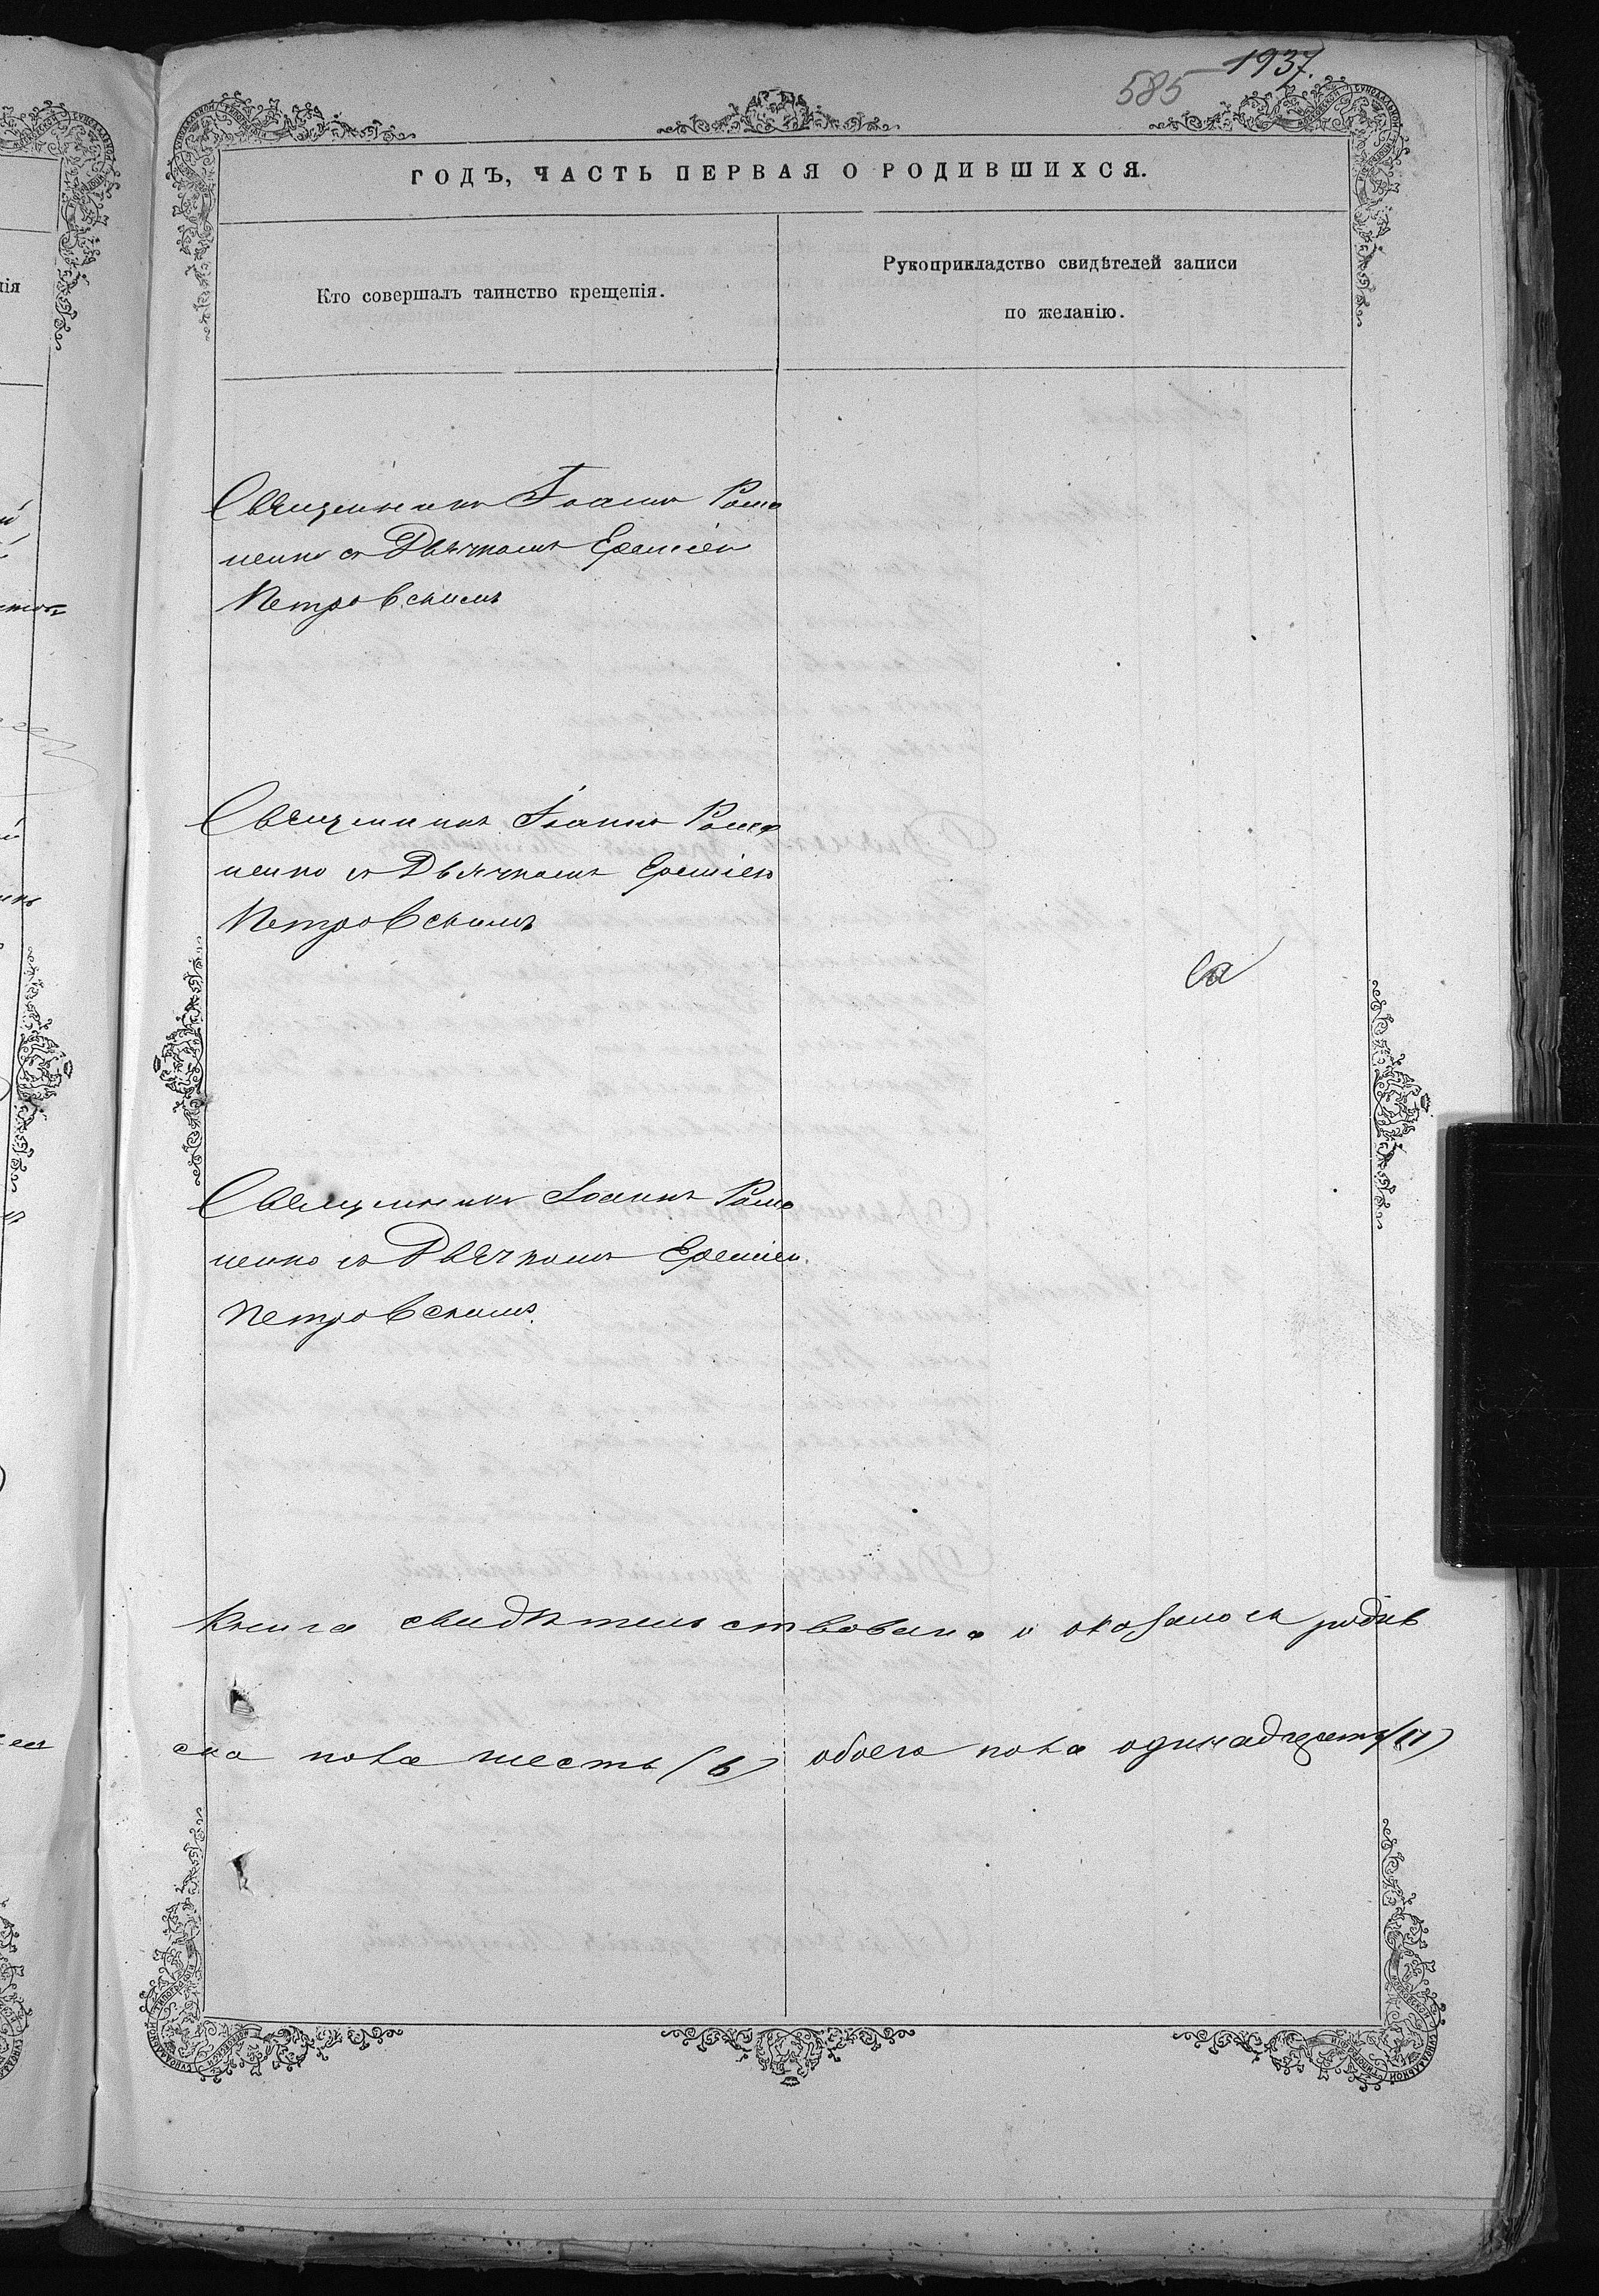 585 1937.
ГОДЪ, ЧАСТЬ ПЕРВАЯ О РОДИВШИХСЯ.
Кто совершалъ таинство крещенія.
Рукоприкладство свидѣтелей записи
по желанію.
Священникъ Іоаннъ Рома
ненко съ Дьячкомъ Ереміею
Петровскимъ
Священникъ Іоаннъ Рома
ненко съ Дьячкомъ Ереміею
Петровскимъ
Священникъ Іоаннъ Рома
ненко съ Дьячкомъ Ереміею
Петровскимъ.
Книга свидѣтельствована и оказалось родив
ска пола шесть (6) обоего пола одинадцать (11)